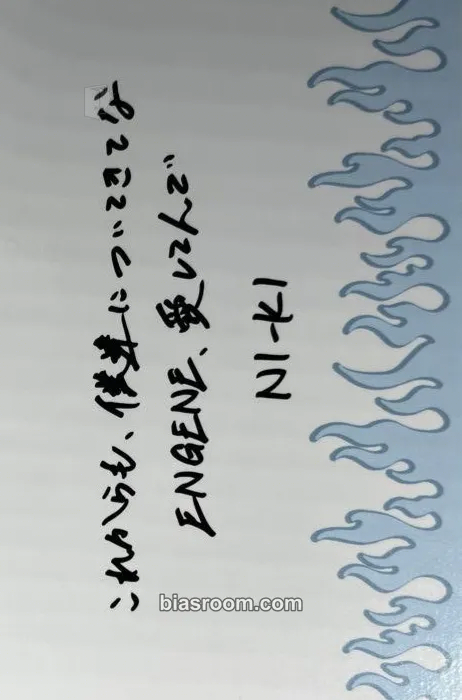 これからも、僕達についてきてな
ENGENE、愛してんで
NI-KI
biasroom.com